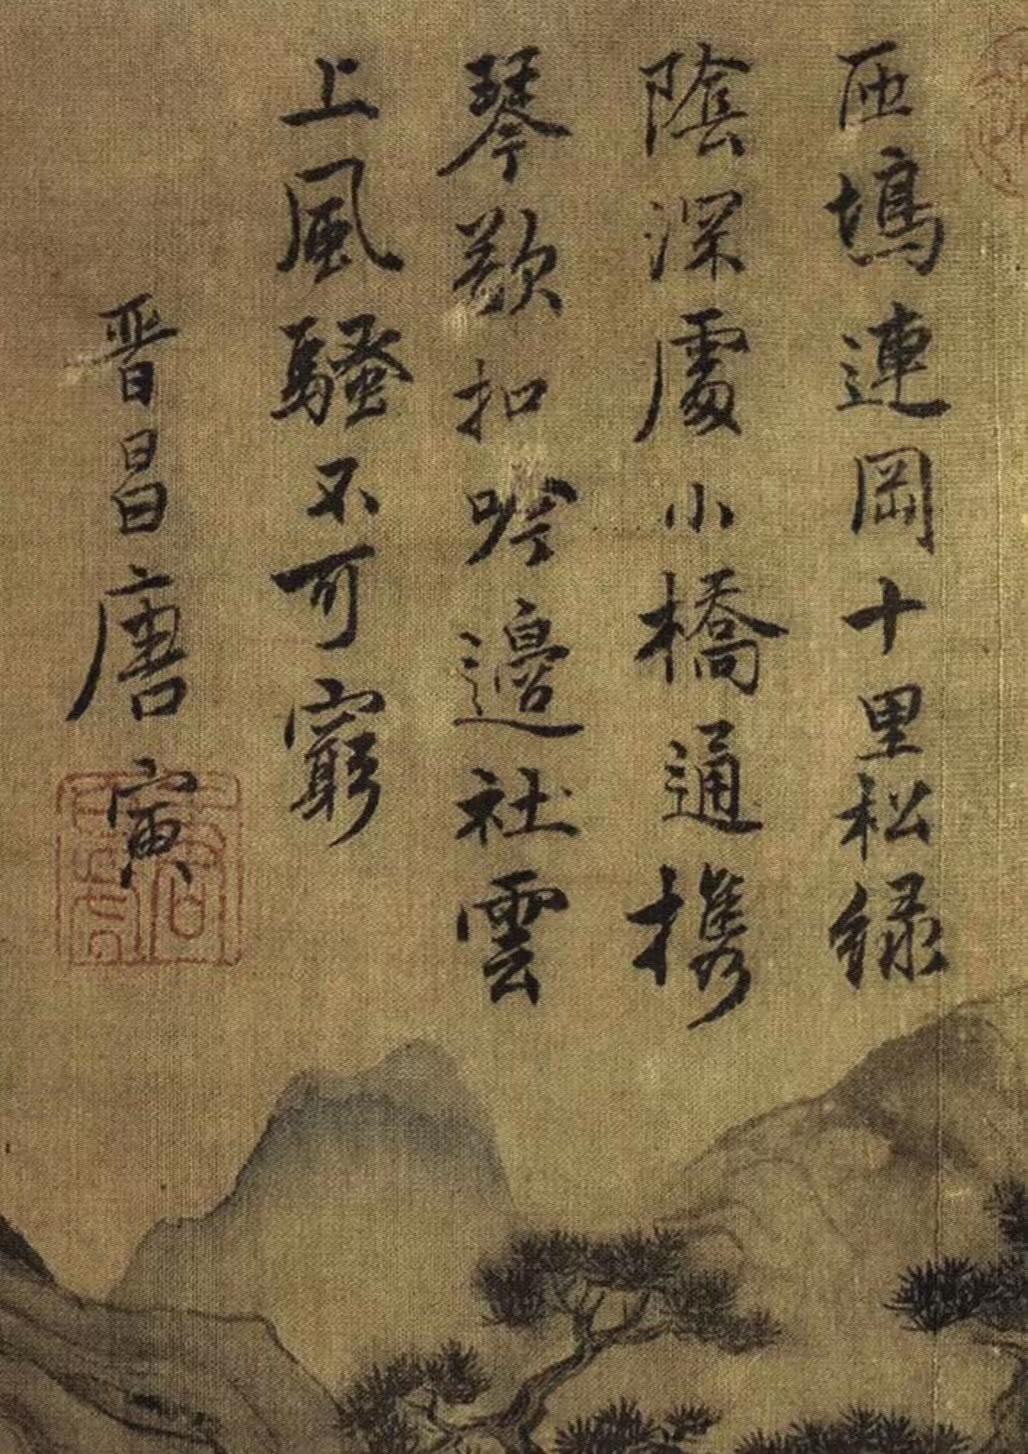 匝塢連岡十里松綠
陰深處小橋通攜
琴欲扣吟邊社雲
上風騷不可窮
晉昌唐寅